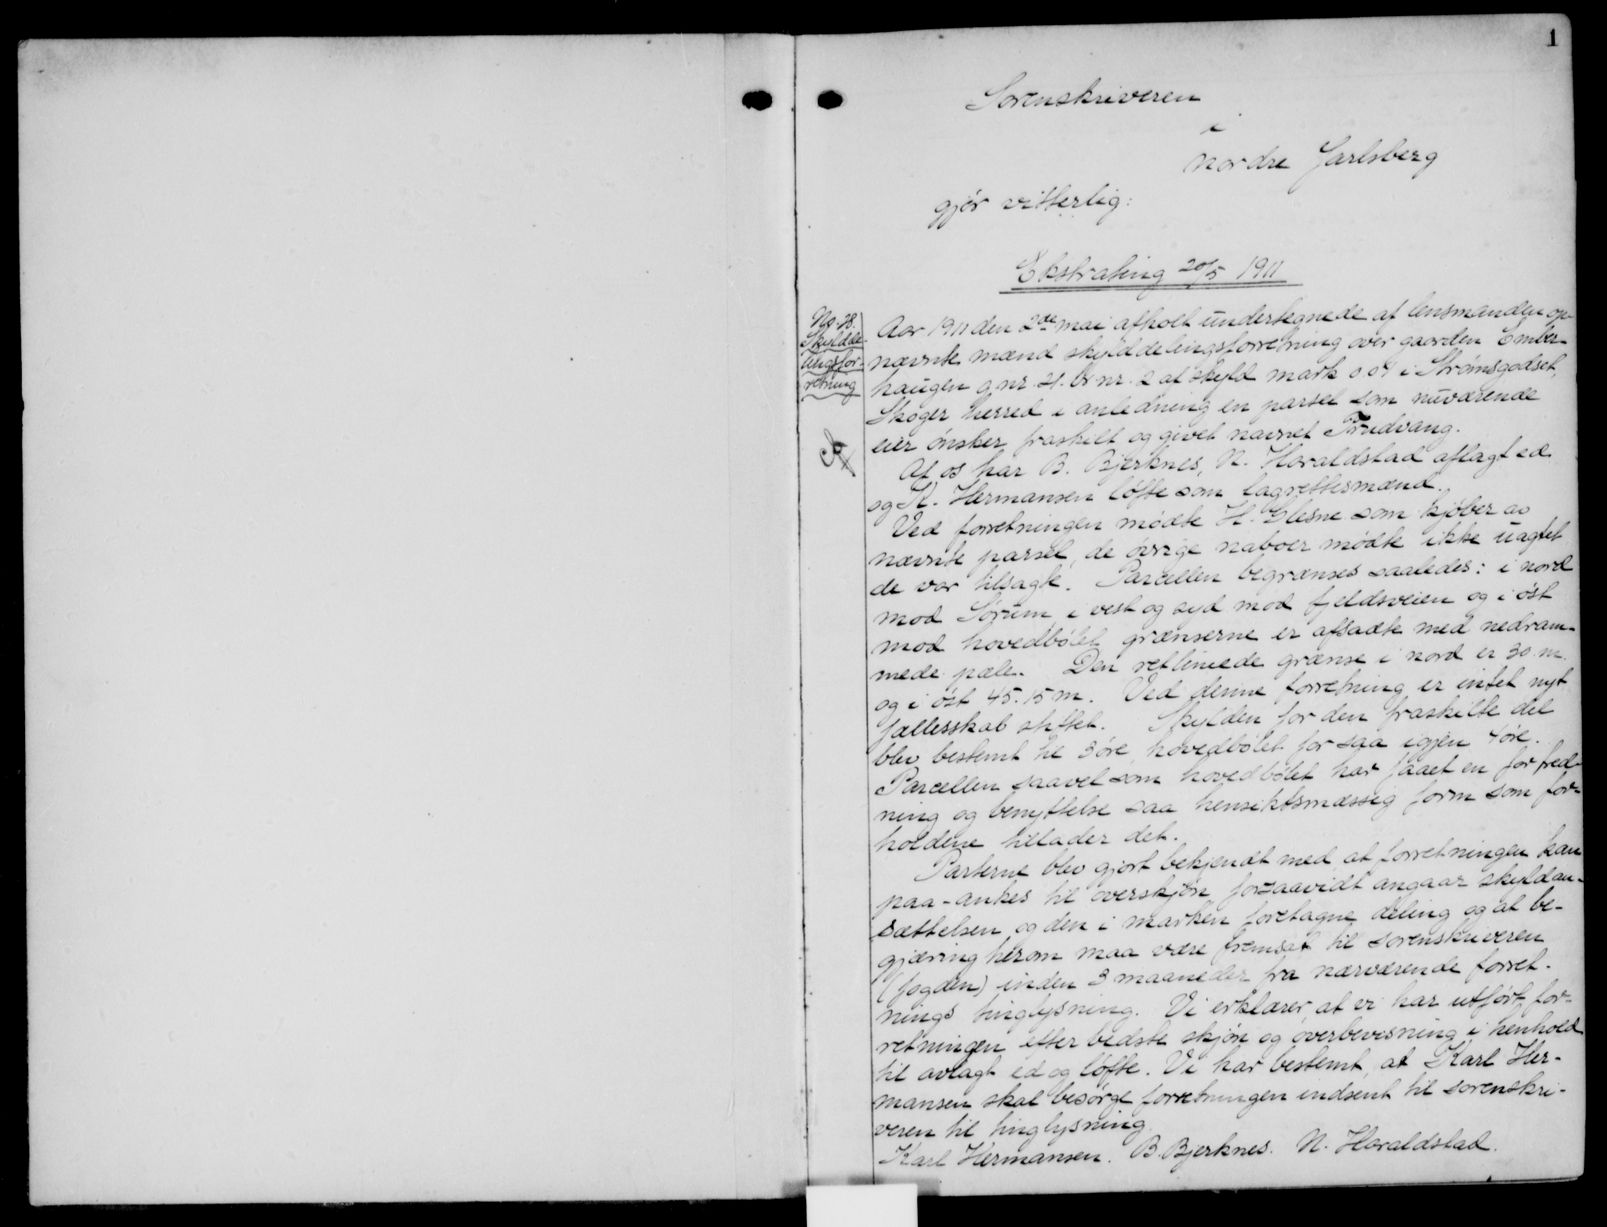 1
Sorenskriveren
i
Nordre Jarlsberg
gjör vitterlig:
Ekstrating 20/5 1911
No. 28.
Skyldde-
lingsfor-
retning
Aar 1911 den 2de mai afholt undertegnede af lensmanden op-
nævnte mænd skylddelingsforretning over gaarden Ember-
haugen g.nr. 21. br.nr. 2 af skyld mark 0.07 i Strømsgodset,
Skoger herred i anledning en parsel som nuværende
eier ønsker fraskilt og givet navnet Trudvang.
Af os har B. Bjerknes, N. Haraldstad aflagt ed
og K. Hermansen löfte som lagrettesmænd.
Ved forretningen mödte H. Glesne som kjöber av
nævnte parsel, de övrige naboer mödte ikke uagtet
de var tilsagte. Parcellen begrænses saaledes: i nord
mod Sörum, i vest og syd mod fjeldsveien og i öst
mod hovedbölet grænserne er afsadte med nedram-
mede pæle. Den retliniede grænse i nord er 30 m.
og i öst 45.15 m. Ved denne forretning er intet nyt
fællesskab stiftet. Skylden for den fraskilte del
blev bestemt til 3 öre, hovedbölet for saa igjen 4 öre.
Parcellen saavel som hovedbölet har faaet en for fred-
ning og benyttelse saa hensiktsmæssig form som for-
holdene tillader det.
Parterne blev gjort bekjendt med at forretningen kan
paa-ankes til overskjön forsaavidt angaar skyldan-
sættelsen og den i marken foretagne deling og at be-
gjæring herom maa være fremsat til sorenskriveren
(fogden) inden 3 maaneder fra nærværende forret-
nings tinglysning. Vi erklærer, at vi har utfört for-
retningen efter bedste skjön og overbevisning i henhold
til avlagt ed og löfte. Vi har bestemt, at Karl Her-
mansen skal besörge forretningen indsent til sorenskri-
veren til tinglysning.
Karl Hermansen. B. Bjerknes. N. Haraldstad.